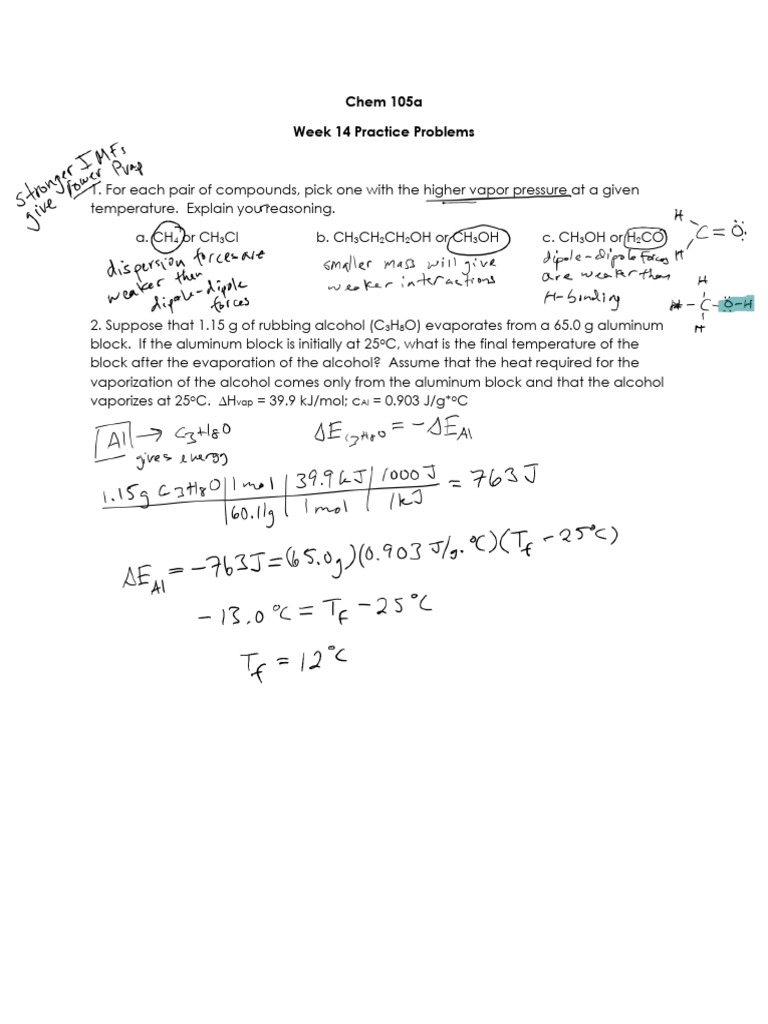 Chem 105a
Week 14 Practice Problems
stronger IMFs
give lower Pvap
1. For each pair of compounds, pick one with the higher vapor pressure at a given
temperature. Explain your reasoning.
a. CH₄ or CH₃Cl b. CH₃CH₂CH₂OH or CH₃OH c. CH₃OH or H₂CO
dispersion forces are
weaker then
dipole-dipole
forces
smaller mass will give
weaker interactions
dipole-dipole forces
are weaker than
H-binding
H
C=Ö:
H
H
H-C-Ö-H
H
2. Suppose that 1.15 g of rubbing alcohol (C₃H₈O) evaporates from a 65.0 g aluminum
block. If the aluminum block is initially at 25°C, what is the final temperature of the
block after the evaporation of the alcohol? Assume that the heat required for the
vaporization of the alcohol comes only from the aluminum block and that the alcohol
vaporizes at 25°C. ΔHvap = 39.9 kJ/mol; cAl = 0.903 J/g*°C
Al → C₃H₈O ΔE C₃H₈O = -ΔE Al
gives energy
1.15g C₃H₈O | 1 mol | 39.9 kJ | 1000 J = 763 J
60.11g | 1 mol | 1kJ
ΔE Al = -763J = (65.0g)(0.903 J/g.°C)(Tf - 25°C)
-13.0°C = Tf - 25°C
Tf = 12°C